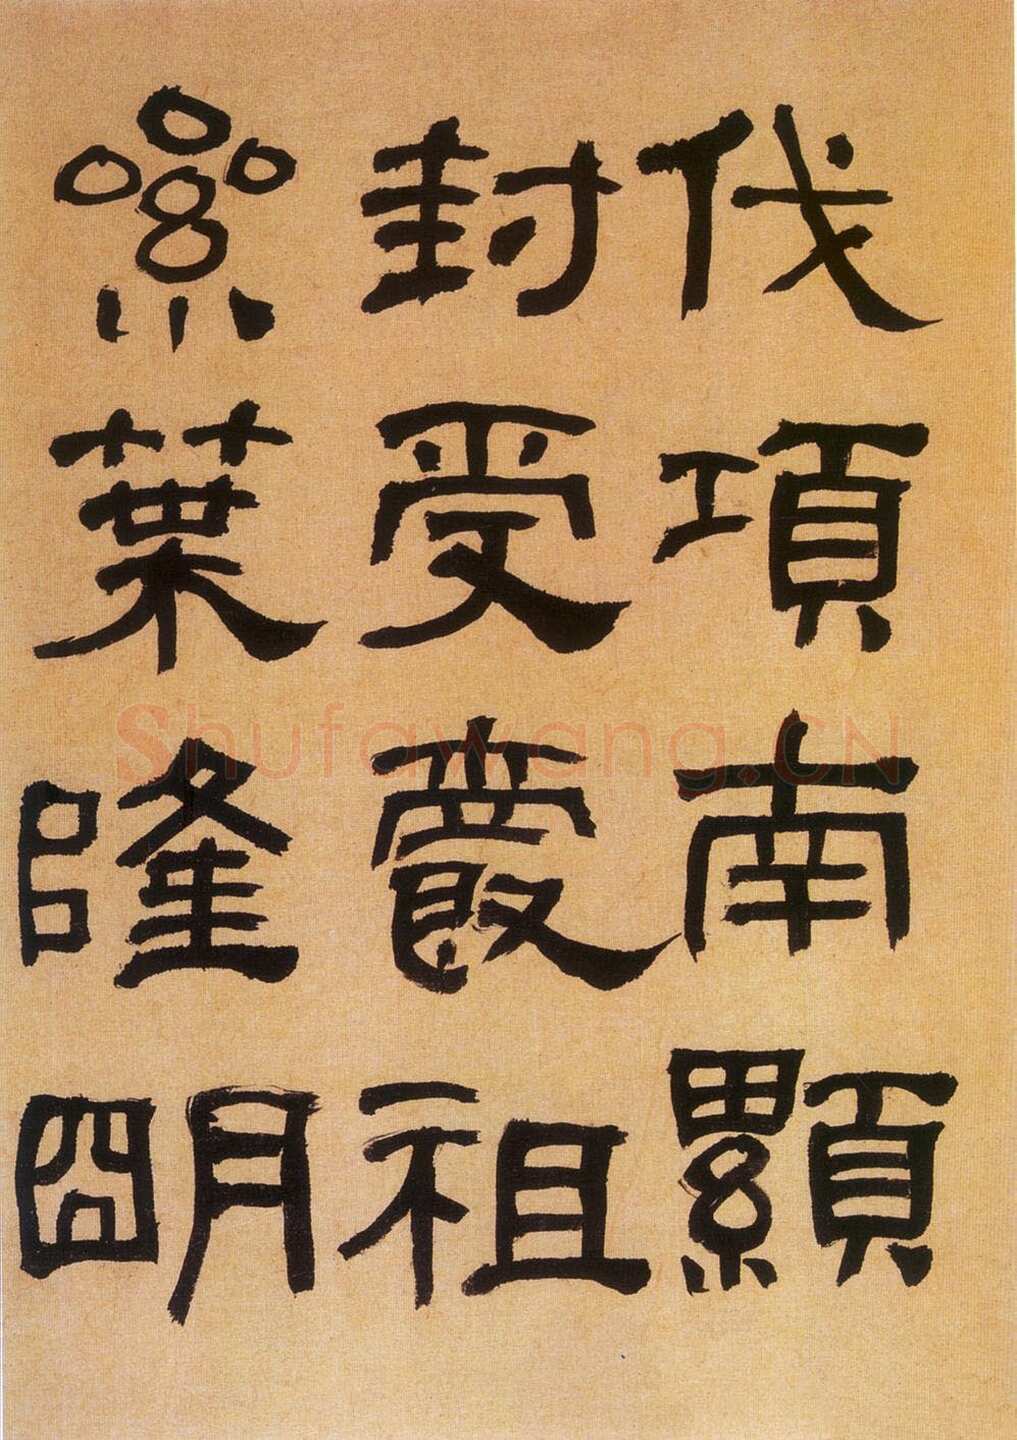 伐項南顯
封受爵祖
絫葉隆朙
Shufawang.CN